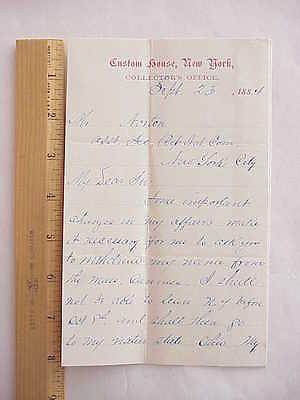 Custom House, New York,
COLLECTOR'S OFFICE.
Sept 23, 1884
Mr Acton
Rep Nat Com
New York City
My Dear Sir
Some important
changes in my affairs make
it necessary for me to ask you
to withdraw my name from
the Mass. Canvass. I shall
not be able to leave N.Y. before
Oct 8th. and shall then go
to my native state Ohio. My